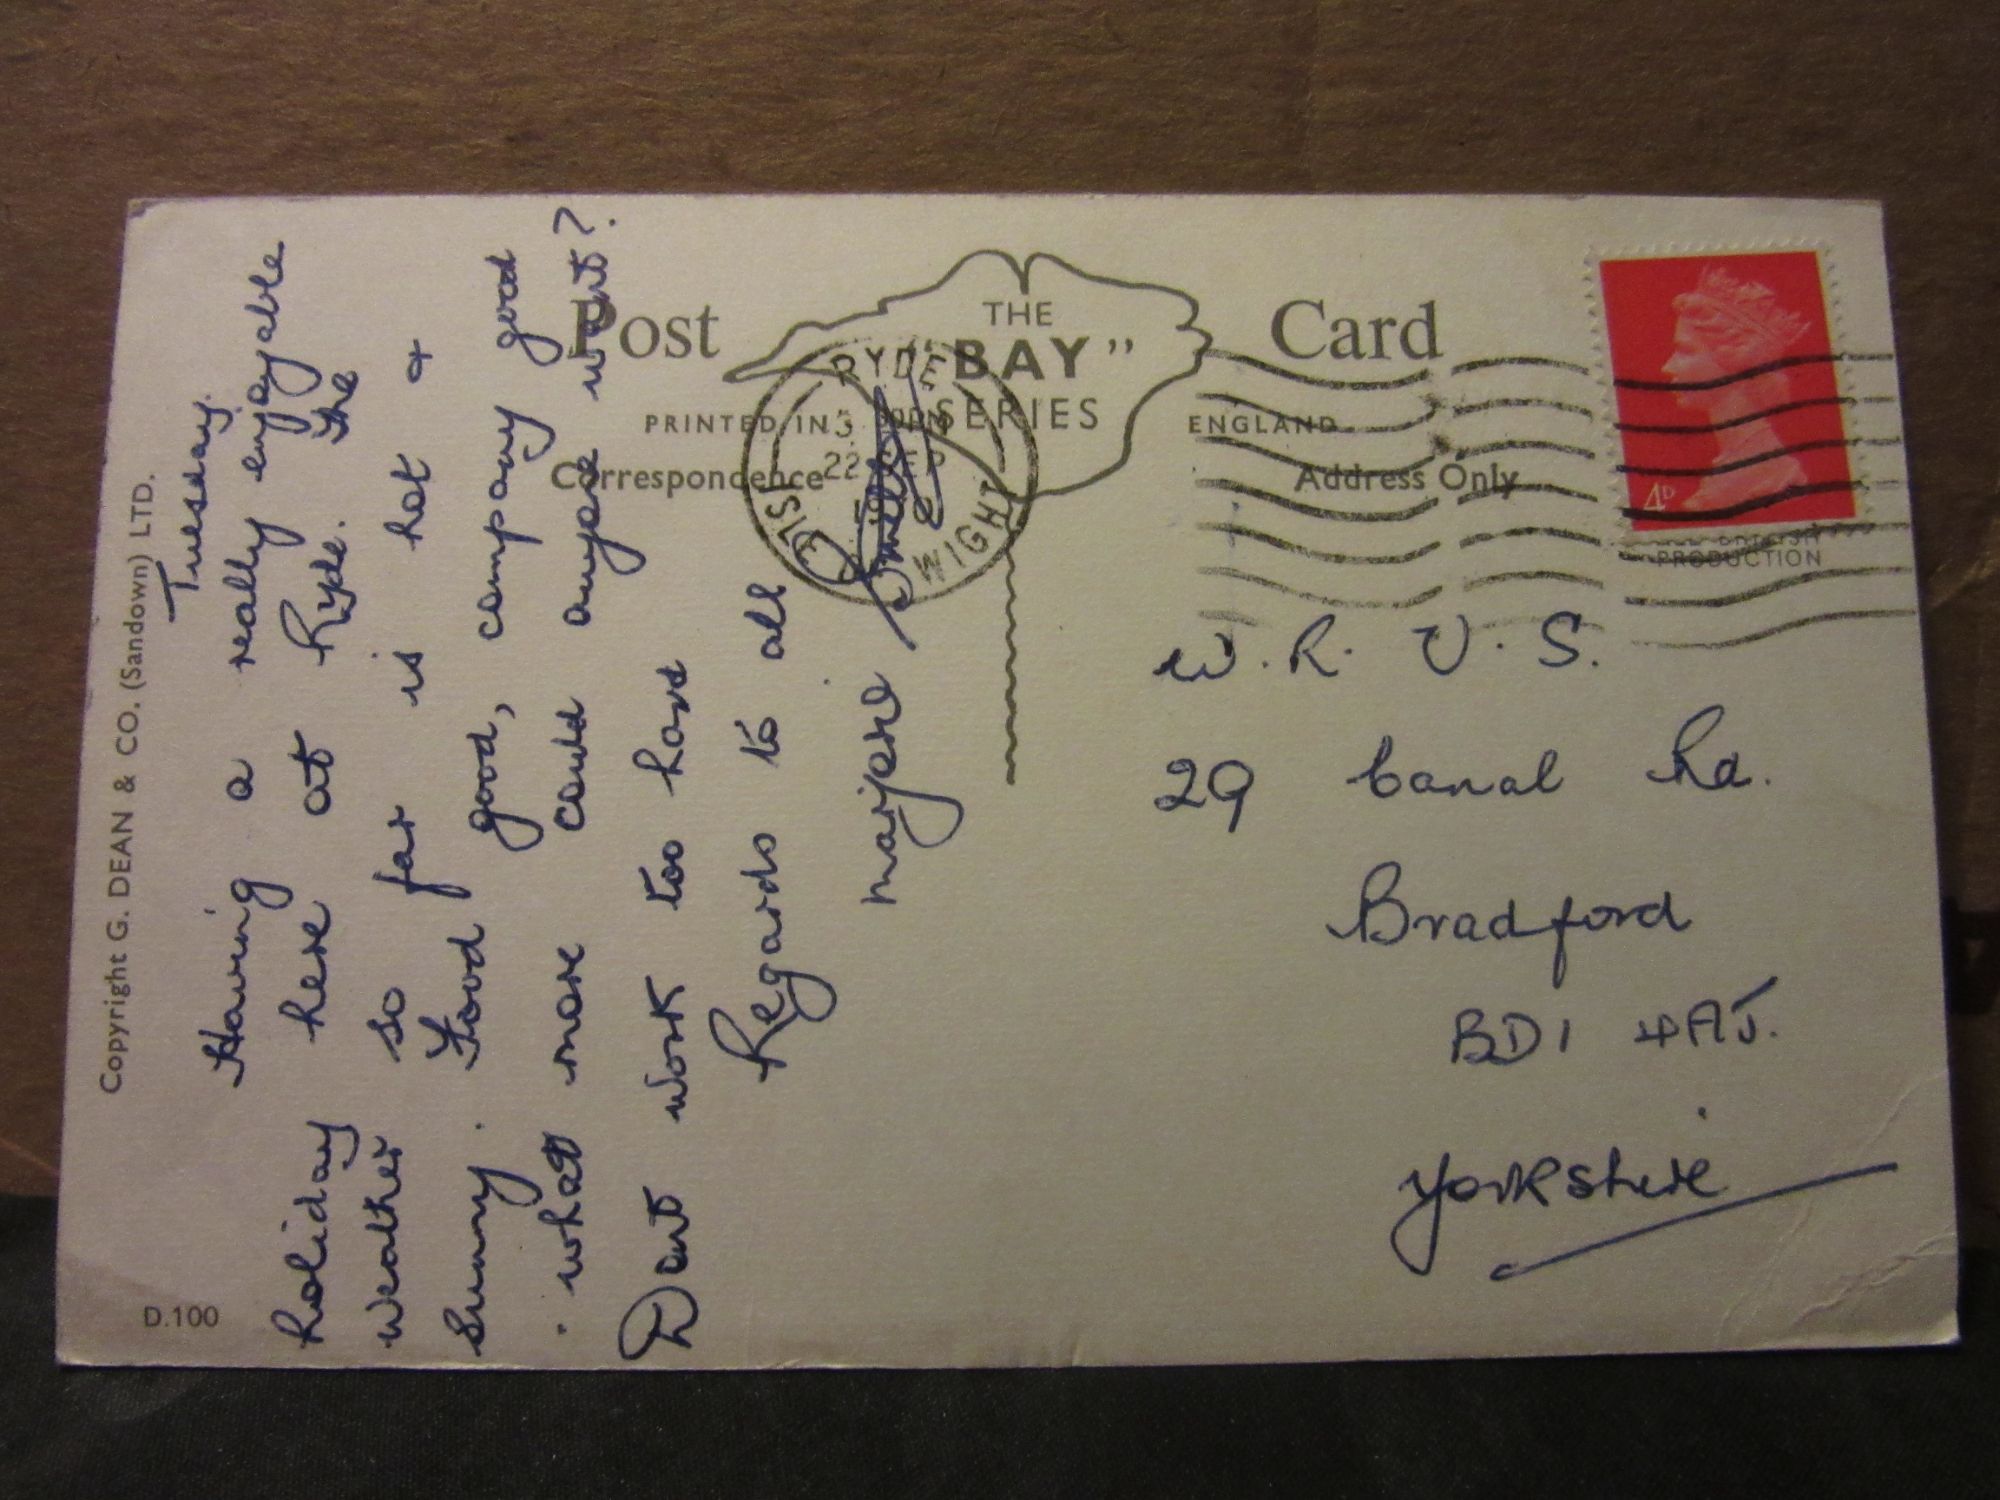 Copyright G. DEAN & CO. (Sandown) LTD.
D.100
Post Card
THE
"BAY"
SERIES
PRINTED IN ENGLAND
Correspondence
Address Only
BRITISH
PRODUCTION
4D
RYDE
22 SEP
ISLE OF WIGHT
Tuesday.
Having a really enjoyable
holiday here at Ryde. The
weather so far is hot &
sunny. Food good, company good
what more could anyone want?
Dont work too hard
Regards to all
Marjorie
W.R.V.S.
29 Canal Rd.
Bradford
BD1 4AJ.
Yorkshire